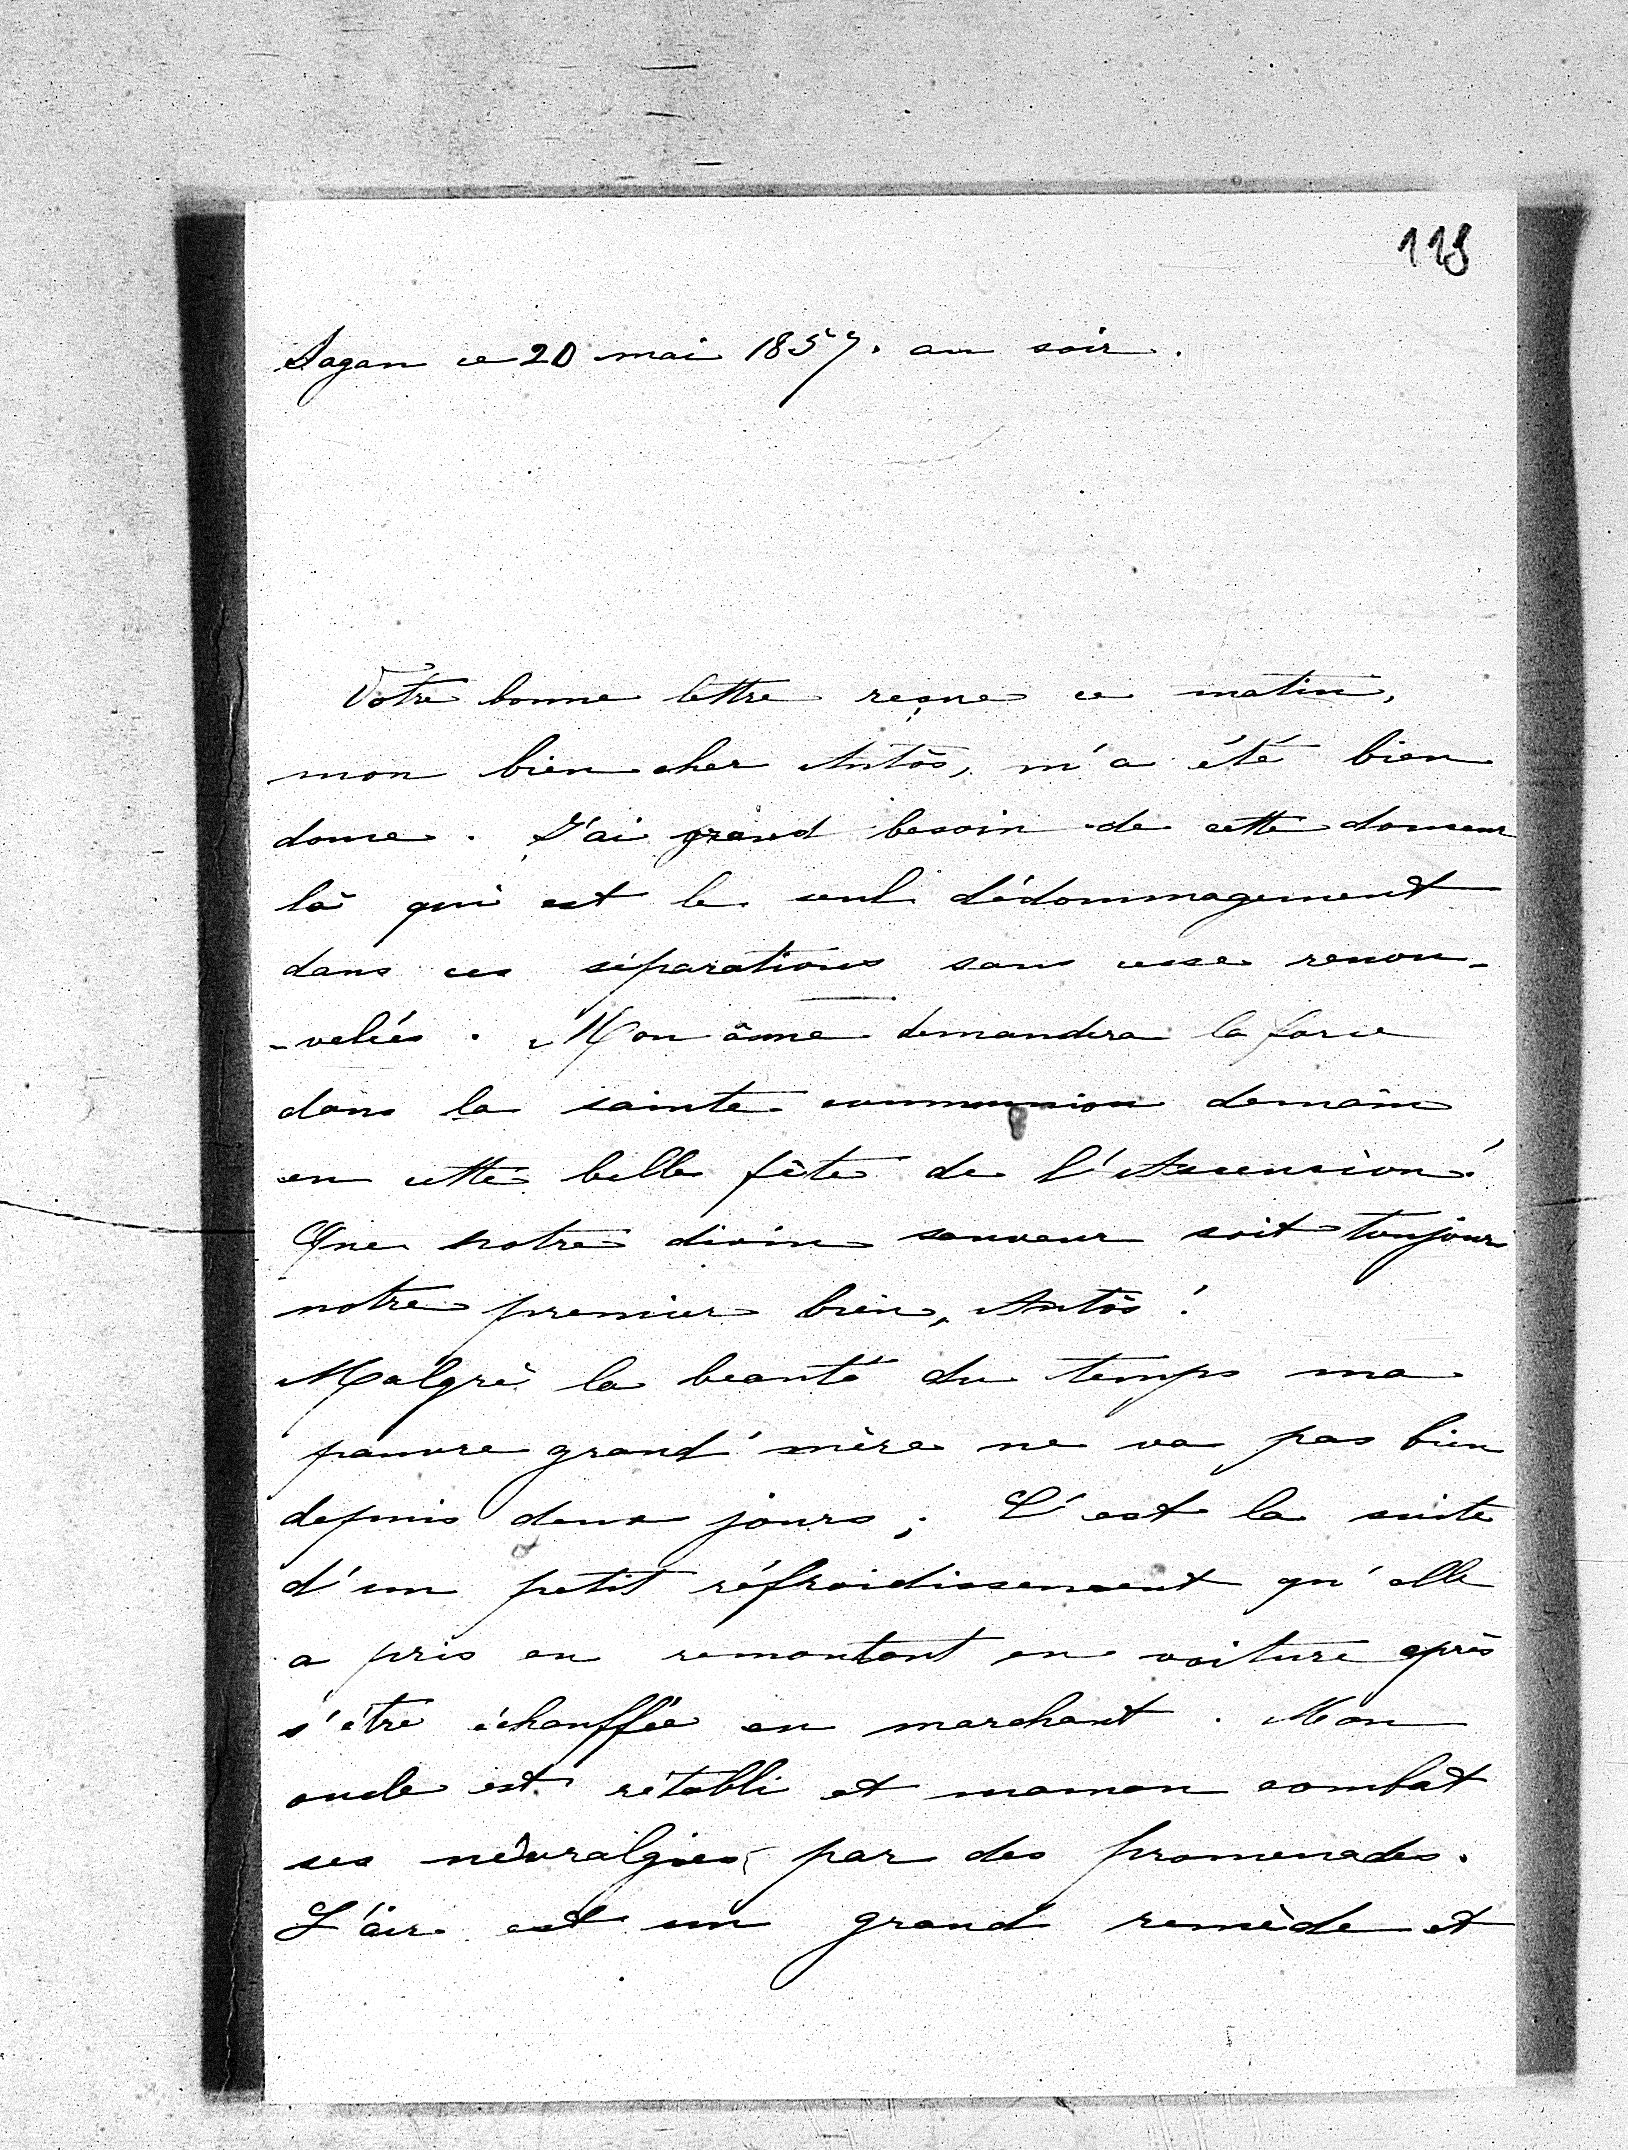 118
Sagan ce 20 mai 1857. au soir.
Votre bonne lettre reçue ce matin,
mon bien cher Antôs, m'a été bien
douce. J'ai grand besoin de cette douceur
là qui est le seul dédommagement
dans ces séparations sans cesse renou-
-velées. Mon âme demandera la force
dans la sainte communion demain
en cette belle fête de l'Ascension!
Que notre divin sauveur soit toujours
notre premier bien, Antôs!
Malgré la beauté du temps ma
pauvre grand'mère ne va pas bien
depuis deux jours; C'est la suite
d'un petit réfroidissement qu'elle
a pris en remontant en voiture après
s'être échauffée en marchant. Mon
oncle est rétabli et maman combat
ses névralgies par des promenades.
L'air est un grand remède et